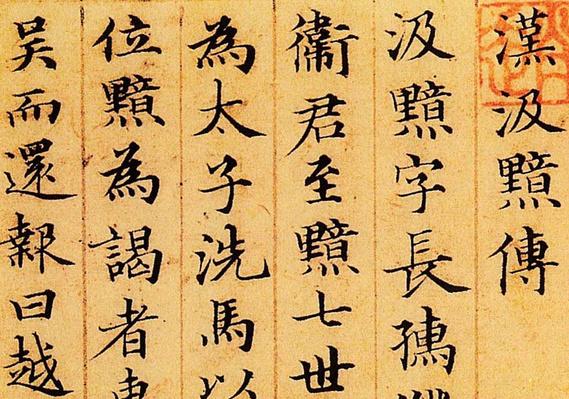 漢汲黯傳
汲黯字長孺
衛君至黯七世
為太子洗馬以
位黯為謁者東
吳而還報曰越